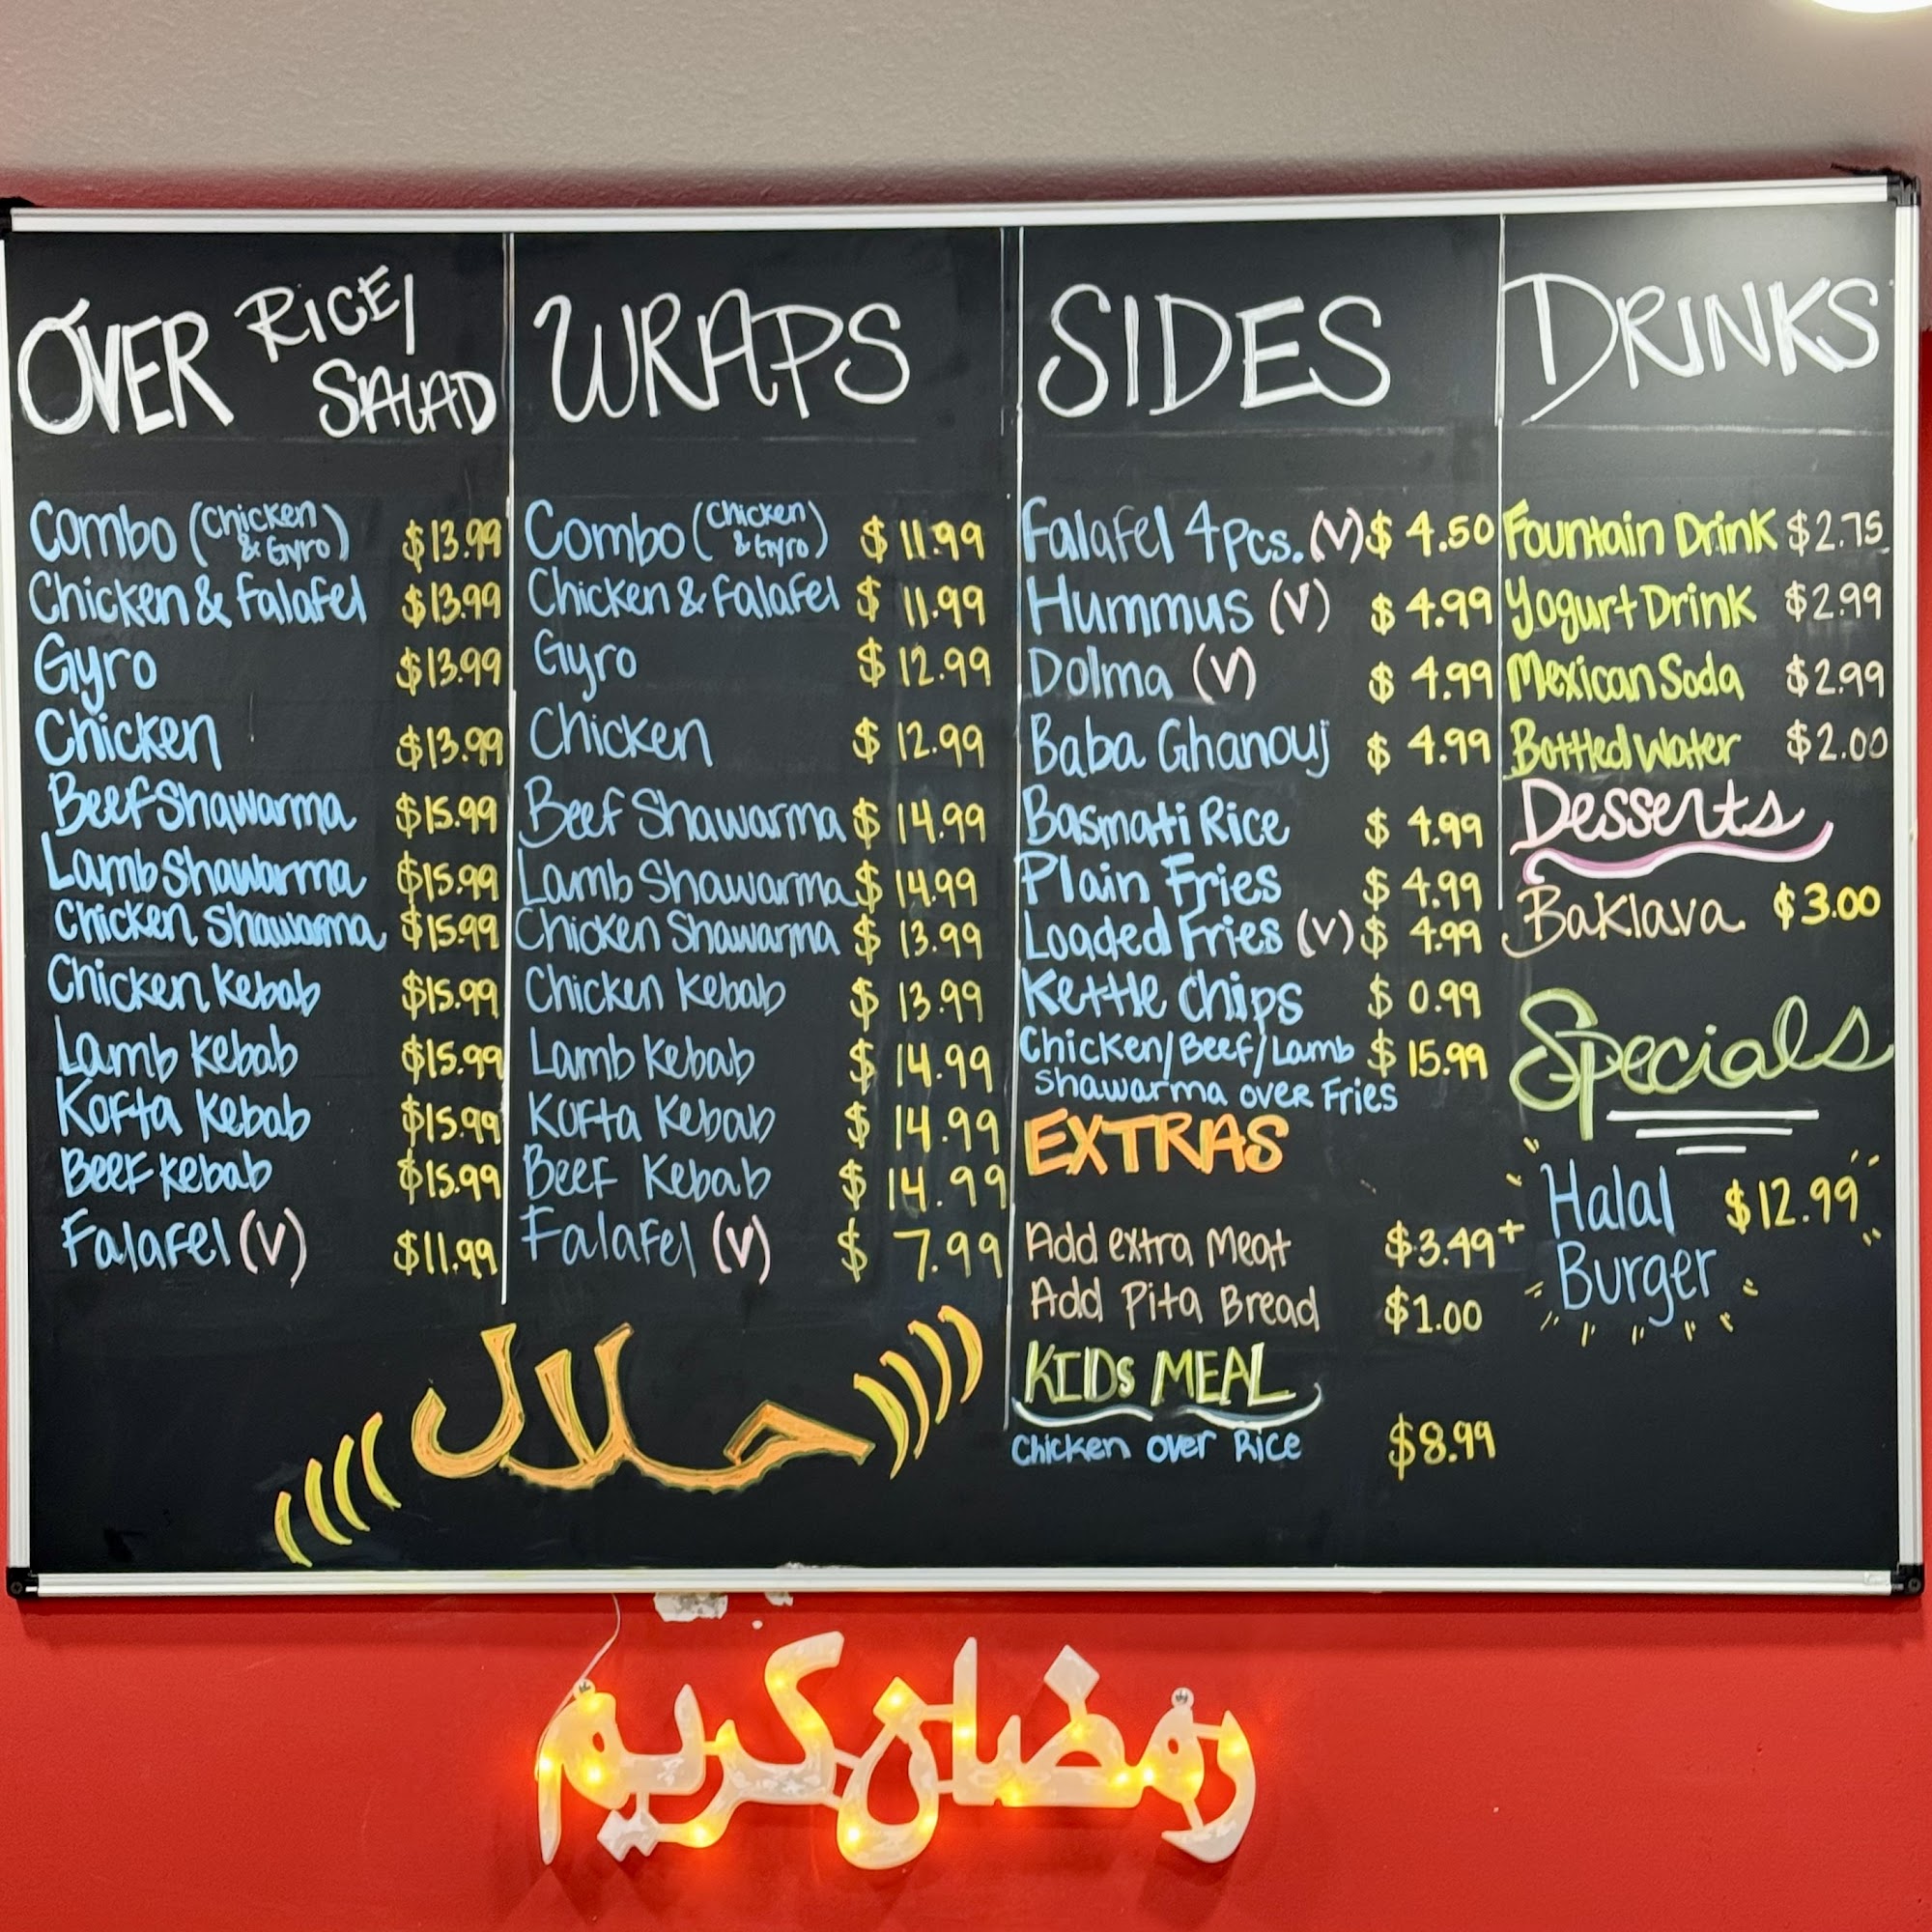 OVER RICE/
SALAD
Combo (Chicken & Gyro) $13.99
Chicken & Falafel $13.99
Gyro $13.99
Chicken $13.99
Beef Shawarma $15.99
Lamb Shawarma $15.99
Chicken Shawarma $15.99
Chicken Kebab $15.99
Lamb Kebab $15.99
Kofta Kebab $15.99
Beef Kebab $15.99
Falafel (V) $11.99
WRAPS
Combo (Chicken & Gyro) $ 11.99
Chicken & Falafel $ 11.99
Gyro $ 12.99
Chicken $ 12.99
Beef Shawarma $ 14.99
Lamb Shawarma $ 14.99
Chicken Shawarma $ 13.99
Chicken Kebab $ 13.99
Lamb Kebab $ 14.99
Kofta Kebab $ 14.99
Beef Kebab $ 14.99
Falafel (V) $ 7.99
حلال
SIDES
Falafel 4pcs. (V) $ 4.50
Hummus (V) $ 4.99
Dolma (V) $ 4.99
Baba Ghanouj $ 4.99
Basmati Rice $ 4.99
Plain Fries $ 4.99
Loaded Fries (V) $ 4.99
Kettle Chips $ 0.99
Chicken/Beef/Lamb $ 15.99
Shawarma over Fries
EXTRAS
Add extra Meat $3.49+
Add Pita Bread $1.00
KIDs MEAL
Chicken over Rice $8.99
DRINKS
Fountain Drink $2.75
Yogurt Drink $2.99
Mexican Soda $2.99
Bottled Water $2.00
Desserts
Baklava $3.00
Specials
Halal $12.99
Burger
رمضان كريم